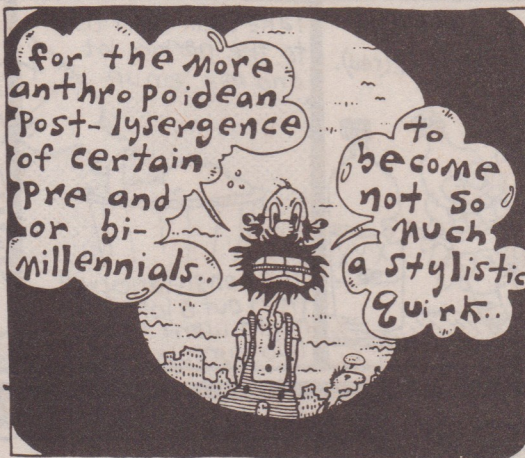 for the more
anthropoidean
post-lysergence
of certain
pre and
or bi-
millennials..
to
become
not so
much
a stylistic
quirk..